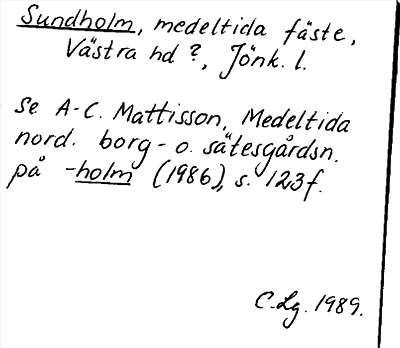 Sundholm, medeltida fäste,
Västra hd ?, Jönk. l.
Se A-C. Mattisson, Medeltida
nord. borg- o. sätesgårdsn.
på -holm (1986), s. 123f.
C.Lg. 1989.